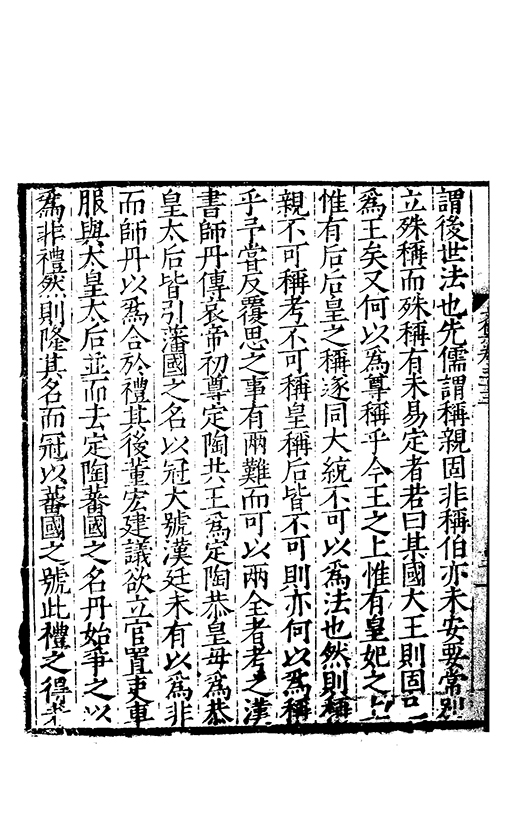 謂後世法也先儒謂稱親固非稱伯亦未安要當別
立殊稱而殊稱有未易定者若曰某國大王則固已
爲王矣又何以爲尊稱乎今王之上惟有皇妃之上
惟有后后皇之稱遂同大統不可以爲法也然則稱
親不可稱考不可稱皇稱后皆不可則亦何以爲稱
乎予嘗反覆思之事有兩難而可以兩全者考之漢
書師丹傳哀帝初尊定陶共王爲定陶恭皇母爲恭
皇太后皆引藩國之名以冠大號漢廷未有以爲非
而師丹以爲合於禮其後董宏建議欲立官置吏車
服與太皇太后並而去定陶蕃國之名丹始爭之以
爲非禮然則隆其名而冠以蕃國之號此禮之得